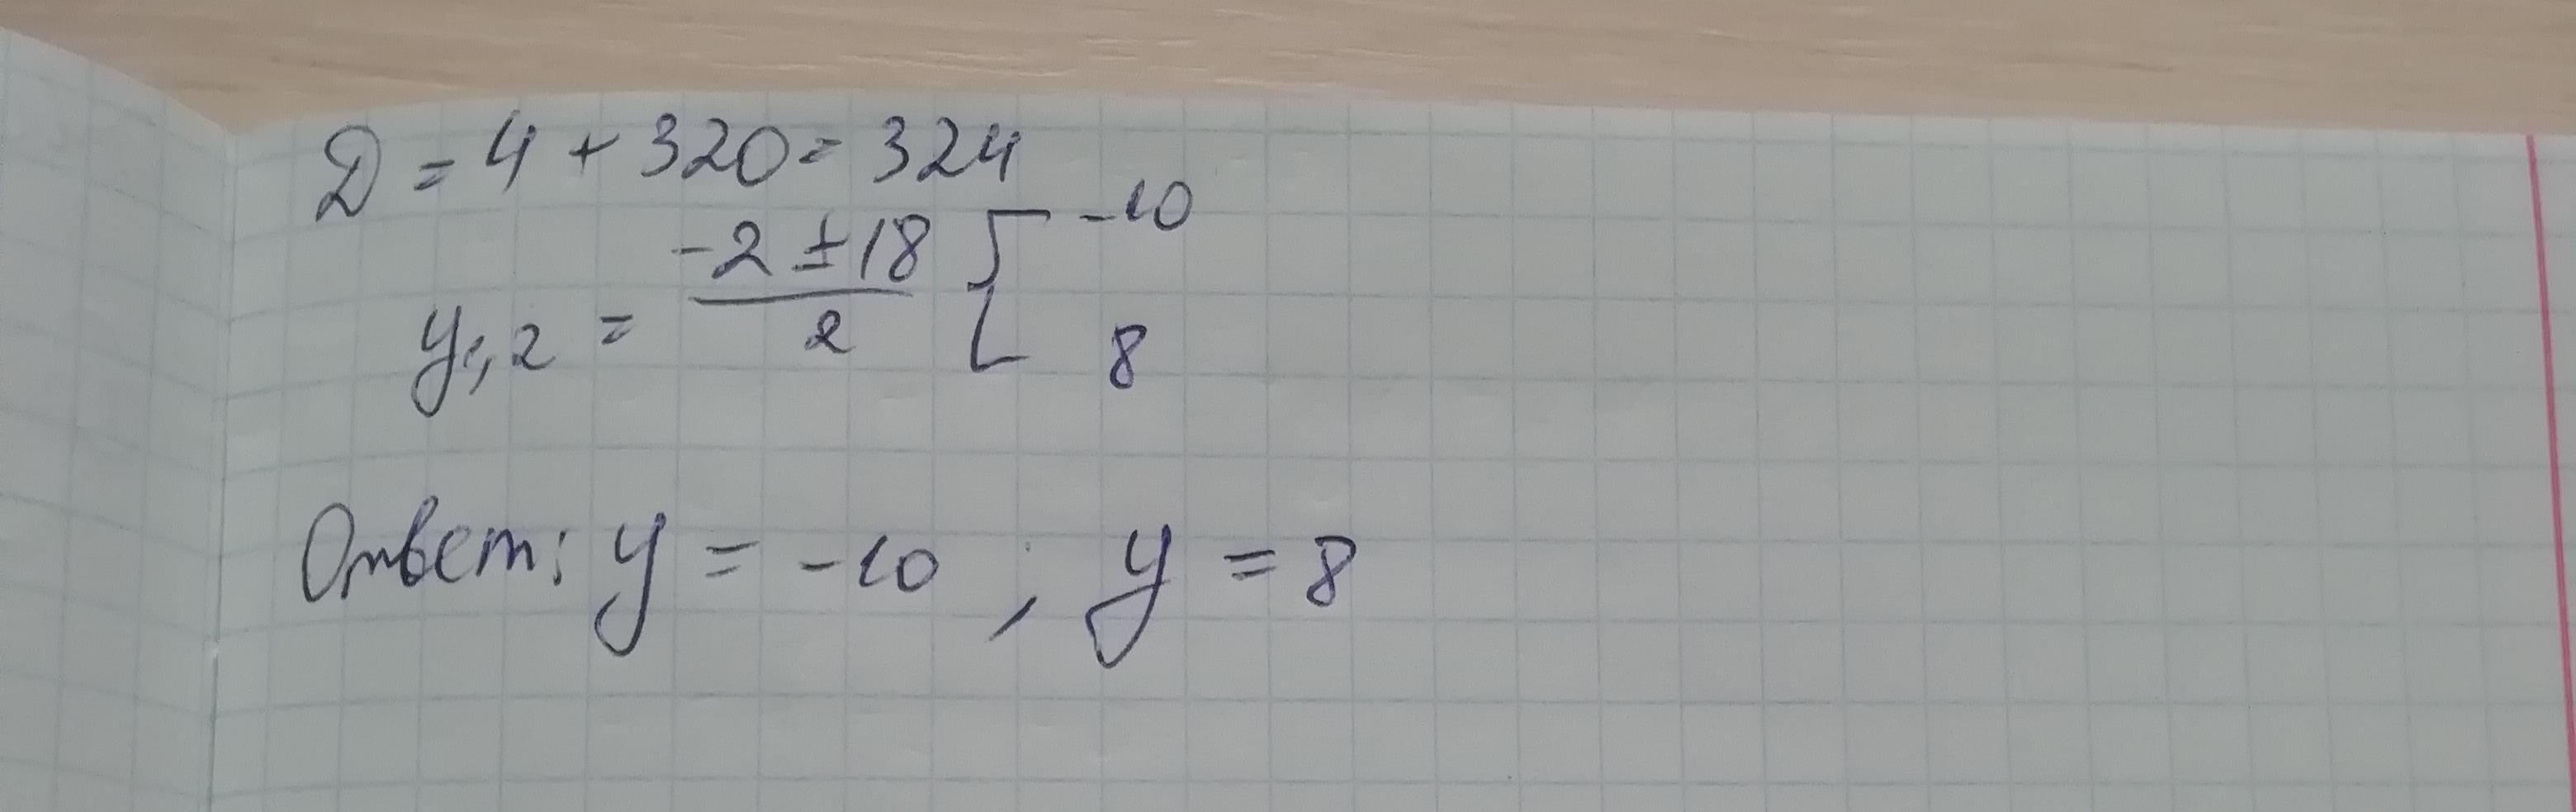 D = 4 + 320 = 324
y1,2 = (-2 ± 18) / 2 [ -10
8
Ответ: y = -10 ; y = 8